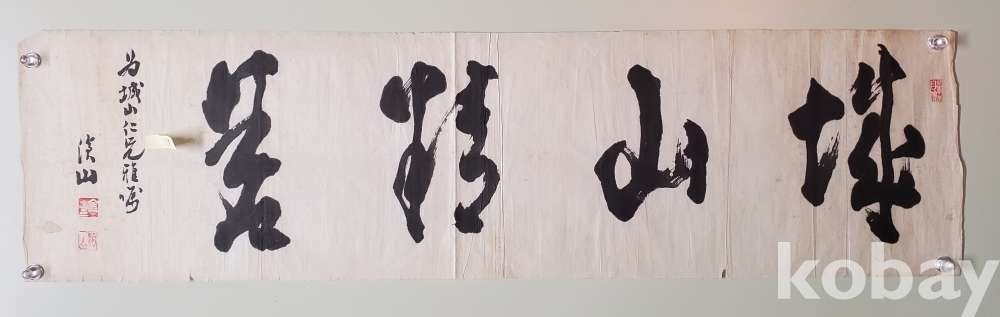 城山精舍
为城山仁兄雅嘱
淡山
kobay